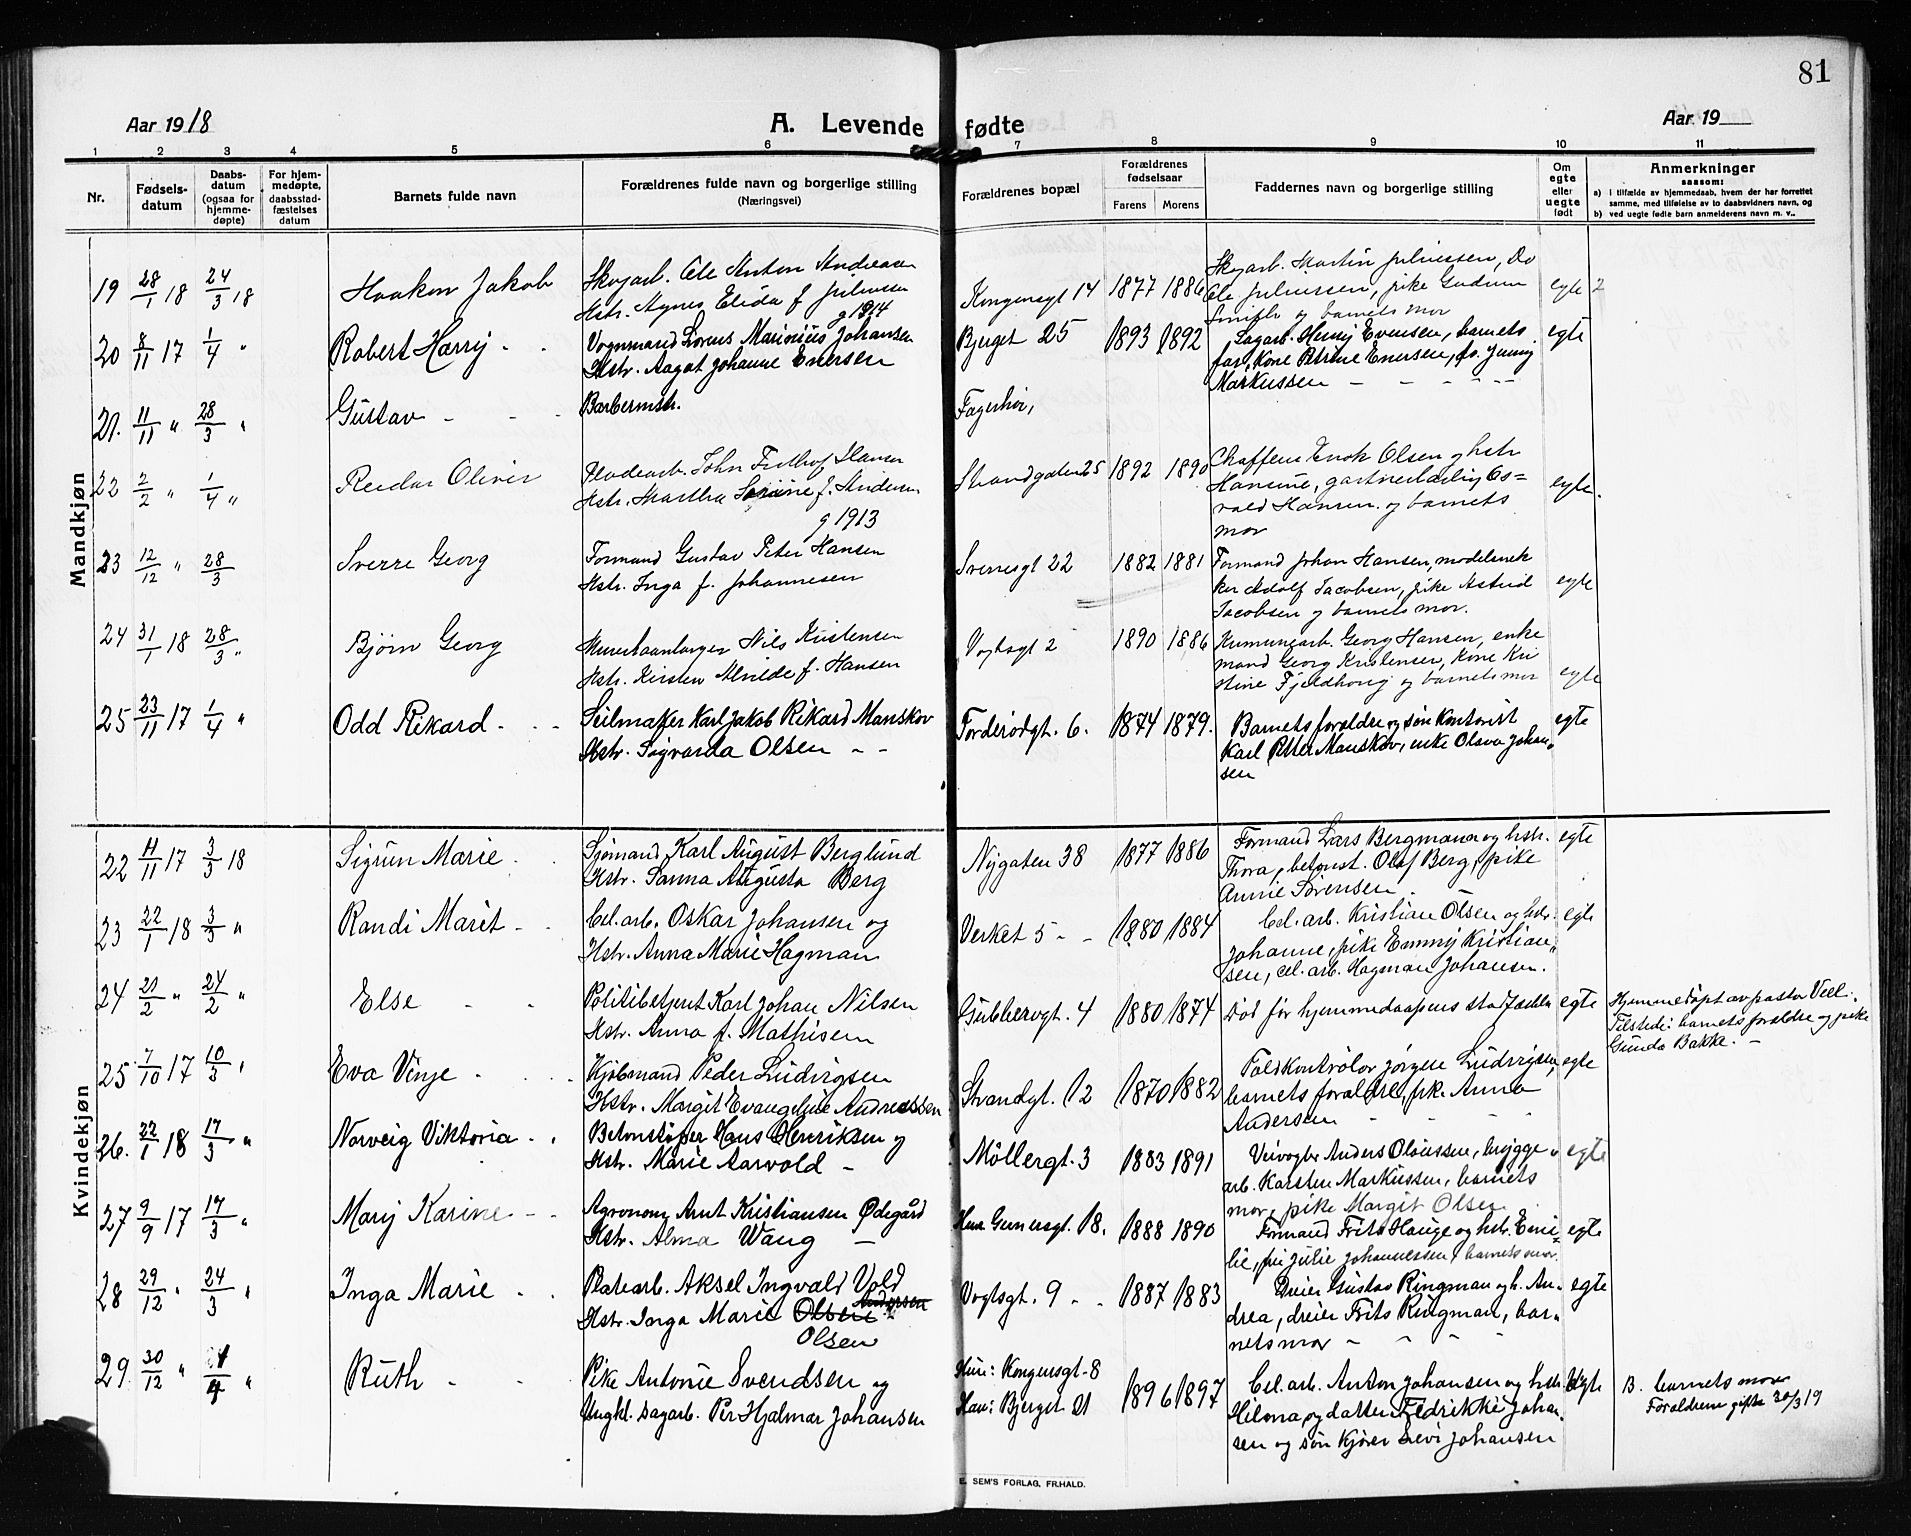 81
Aar 1918
A. Levende fødte
Aar 19
1 2 3 4 5 6 7 8 9 10 11
Nr.
Fødsels-
datum
Daabs-
datum
(ogsaa for
hjemme-
døpte)
For hjem-
medøpte,
daabsstad-
fæstelses
datum
Barnets fulde navn
Forældrenes fulde navn og borgerlige stilling
(Næringsvei)
Forældrenes bopæl
Forældrenes
fødselsaar
Farens Morens
Faddernes navn og borgerlige stilling
Om
egte
eller
uegte
født
Anmerkninger
saasom:
a) I tilfælde av hjemmedaab, hvem der har forrettet
samme, med tilføielse av to daabsvidners navn, og
b) ved uegte fødte barn anmelderens navn m. v..
Mandkjøn
19 28/1 18 24/3 18 Haakon Jakob Skogarb. Ole Anton Andreasen Kongensgt 14 1877 1886 Skogarb. Martin Juliussen, Do egte 2
Hstr. Agnes Elida f. Juliussen Ole Juliussen, pike Gudrun
g 1914 Smith og barnets mor
20 8/11 17 1/4 " Robert Harry - - Vognmand Lorens Marinius Johansen Bjerget 25 1893 1892 Sagarb. Henry Evensen, barnets egte
Hstr. Aagot Johanne Enersen far, Kone Petrine Enersen, fr. Jenny
Markussen - - - - -
21. 11/11 " 28/3 " Gustav - - Barbermstr. Fagerhøi,
22 2/2 " 1/4 " Reidar Oliver John Fridthof Hansen Strandgaten 25 1892 1890 Chaffeur Enok Olsen og hstr egte.
Hstr. Martha f. Andersen Hansine, gartnerlærling Os=
g 1913 vald Hansen og barnets
mor
23 12/12 " 28/3 Sverre Georg Formand Gustav Peter Hansen Sverresgt 22 1882 1881 Formand Johan Hansen, modelsnek egte
Hstr. Inga f. Johannesen ker Adolf Jacobsen, pike Astrid
Jacobsen og barnets mor.
24 31/1 18 28/3 " Bjørn Georg Nils Kristensen Vogtsgt 2 1890 1886 Georg Hansen, enke egte
Hstr. Kirsten Alvilde f. Hansen mand Georg Kristensen, Kone Kri
stine og barnets mor
25 23/11 17 1/4 " Odd Rikard - - - Seilmaker Karl Jakob Rikard Manskov Forderødgt. 6. 1874 1879. Barnets forældre og søn Kontorist egte
Hstr. Sigvarda Olsen - - Karl Petter Manskov, enke Olava Johan-
sen
Kvindekjøn
22 11/11 17 3/3 18 Sigrun Marie - Sjømand Karl August Berglund Nygaten 38 1877 1886 Formand Lars Bergmann og hstr. egte
Hstr. Sanna Augusta Berg Thora, betjonst. Olaf Berg, pike
Annie Sørensen
23 22/1 18 3/3 " Randi Marit - - Cel. arb. Oskar Johansen og Verket 5 - - 1880 1884 Cel. arb. Kristian Olsen og hstr. egte
Hstr. Anna Marie Hagman Johanne, pike Emmy Kristian-
sen, cel. arb. Hagman Johansen.
24 21/2 " 24/2 " Else - - Politibetjent Karl Johan Nilsen Gubberogt. 4 1880 1874 Død før hjemmedaapens egte Hjemmedøpt av pastor Veel.
Hstr. Anna f. Mathisen Tilstede: barnets forældre og pike
Gunda Bakke. -
25 7/10 17 10/3 " Eva Vinje - - - Kjøbmand Peder Ludvigsen Strandgt. 12 1870 1882 Toldkontrolør Jørgen Ludvigsen, egte
Hstr. Margit Evangeline Andreassen barnets forældre, pk. Anna
Andersen - - - -
26. 22/1 18 17/3 " Norveig Viktoria - . Betonstøper Hans Henriksen og Møllergt. 3 1883 1891 Anders Olaussen, brygge- egte
Hstr. Marie Aarvold - arb. Karsten Markussen, barnets
mor, pike Margit Olsen
27 9/9 17 17/3 " Mary Karine - - Agronom Arnt Kristiansen Ødegård 18. 1888 1890 Formand Frits Hauge og hstr. Emi= egte
Hstr. Alma Wang - lie, frk Julie Johannessen, barnets mor.
28 29/12 " 24/3 " Inga Marie - - Platearb. Aksel Ingvald Vold Vogtsgt. 9 - - 1887 1883 Dreier Gustav Ringman og h. An- egte
Andersen
Hstr. Inga Marie Olsen drea, dreier Frits Ringman, bar-
Olsen nets mor - - - -
29 30/12 " 1/4 " Ruth - - Pike Antonie Svendsen og Hun: Kongensgt. 8 1896 1897 Cel. arb. Anton Johansen og hstr Uegte B. barnets mor
Ungkl. sagarb. Per Hjalmar Johansen Han: Bjerget 21 Hilma, og datter Fredrikke Johan- Forældrene gifte 30/3 19
sen og søn kjører Levi Johansen
E. SEM'S FORLAG, FR.HALD.